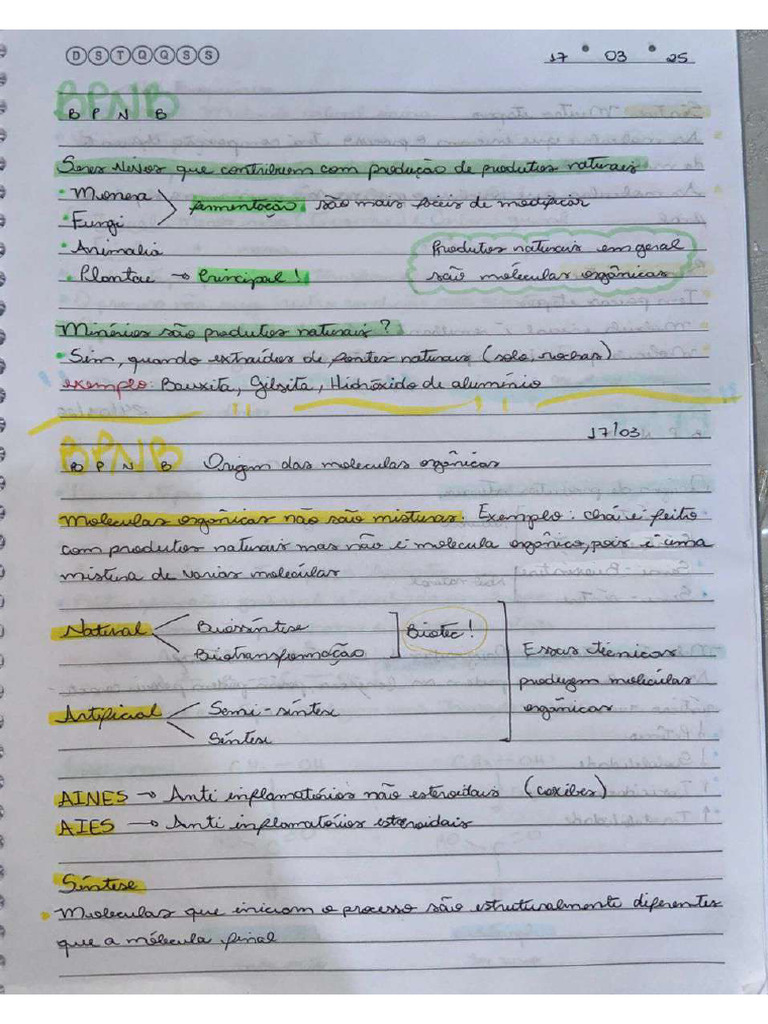 D S T Q Q S S 17 03 25
BPNB
B P N B
Seres vivos que contribuem com produção de produtos naturais
• Monera
fermentação são mais fáceis de modificar
• Fungi
• Animalia
• Plantae → Principal!
Produtos naturais em geral
são moléculas orgânicas
Minérios são produtos naturais?
• Sim, quando extraídos de fontes naturais (solo rochas)
exemplo: Bauxita, Gibsita, Hidróxido de alumínio
17/03
BPNB
B P N B Origem das moleculas orgânicas
Moleculas orgânicas não são misturas. Exemplo: chá é feito
com produtos naturais mas não é molecula orgânico, pois é uma
mistura de varias moleculas
Natural
Biossíntese
Biotransformação
Biotec!
Artificial
Semi-síntese
Síntese
Essas técnicas
produzem moléculas
orgânicas
AINES → Anti inflamatórios não esteroidais (coxibes)
AIES → Anti inflamatórios esteroidais
Síntese
• Moleculas que iniciam o processo são estruturalmente diferentes
que a mólecula final